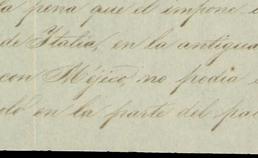 la pena que el impone
de Italia, en la antigua
con Méjico, no podia
en la parte del